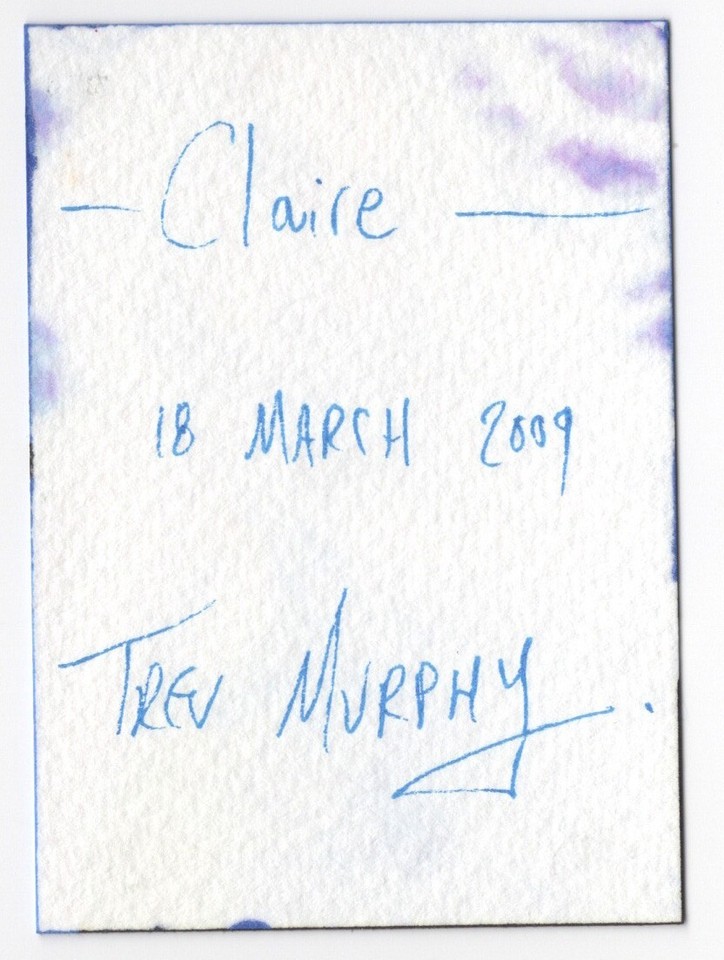 — Claire —
18 MARCH 2009
TREV MURPHY.